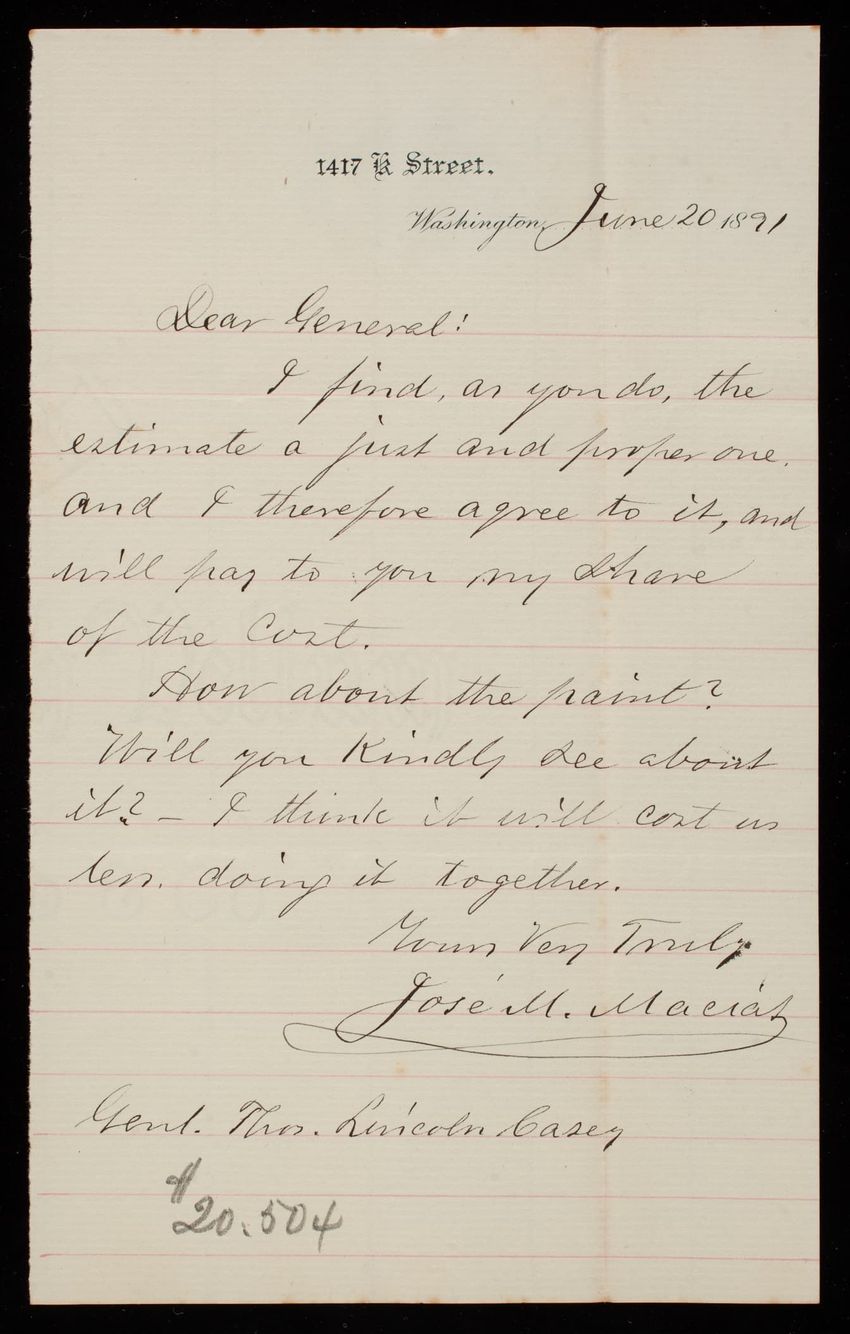 1417 K Street.
Washington, June 20 1891
Dear General!
I find, as you do, the
estimate a just and proper one,
and I therefore agree to it, and
will pay to you my share
of the cost.
How about the paint?
Will you kindly see about
it? – I think it will cost us
less, doing it together.
Yours Very Truly
José M. Macias
Genl. Thos. Lincoln Casey
#
20.504